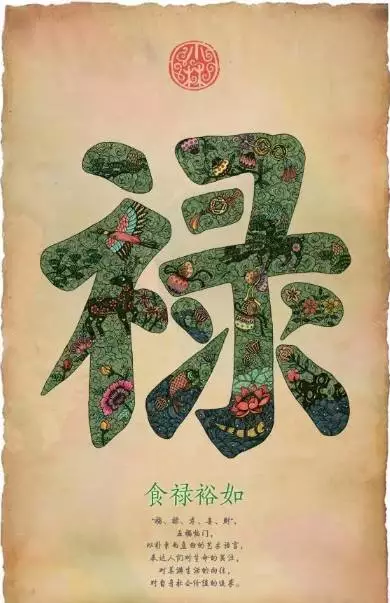 禄
食禄裕如
"福、禄、寿、喜、财",
五福临门,
以朴素而直白的艺术语言,
表达人们对生命的关注,
对美满生活的向往,
对自身社会价值的追求。